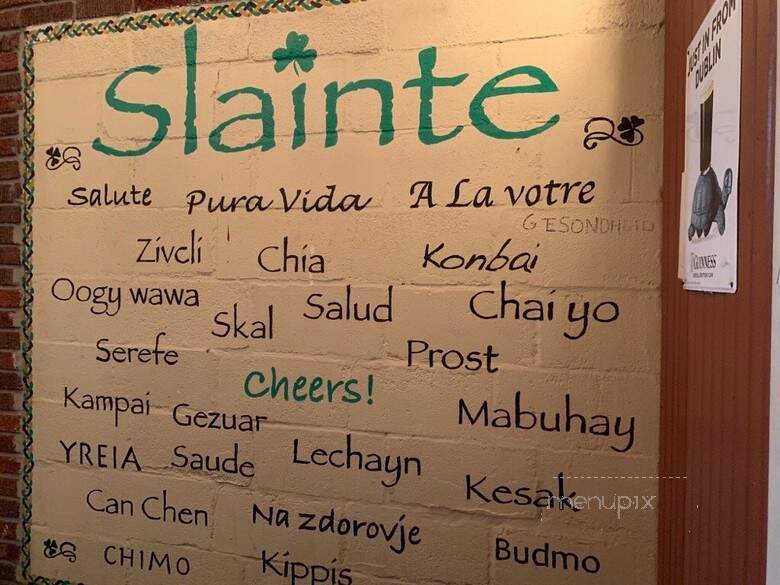 Slainte
JUST IN FROM
DUBLIN
GUINNESS
Salute Pura Vida A La votre
GESONDHEID
Zivcli Chia Konbai
Oogy wawa Skal Salud Chai yo
Serefe Prost
Cheers!
Kampai Gezuar Mabuhay
YREIA Saude Lechayn
Kesak
menupix
Can Chen Na zdorovje
Budmo
CHIMO Kippis